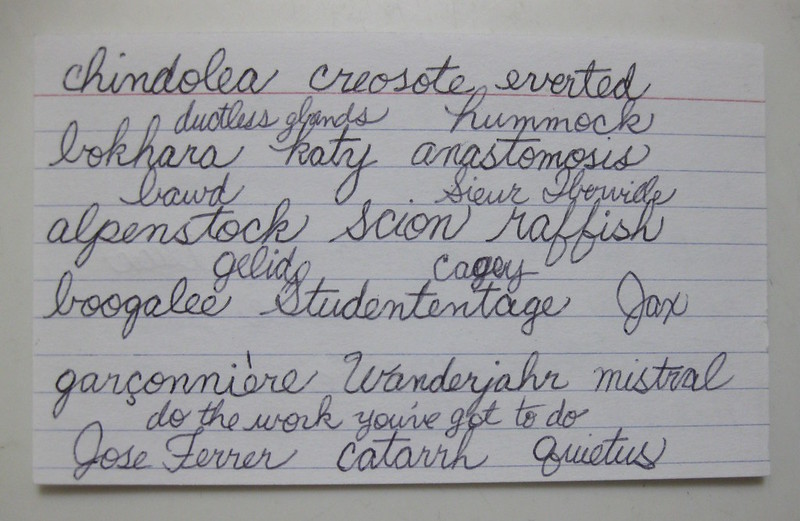 chindolea creosote everted
ductless glands hummock
bokhara katy anastomosis
bawd Sieur Iberville
alpenstock scion raffish
gelid cagey
boogalee Studententage Jax
garçonnière Wanderjahr mistral
do the work you've got to do
Jose Ferrer catarrh quietus